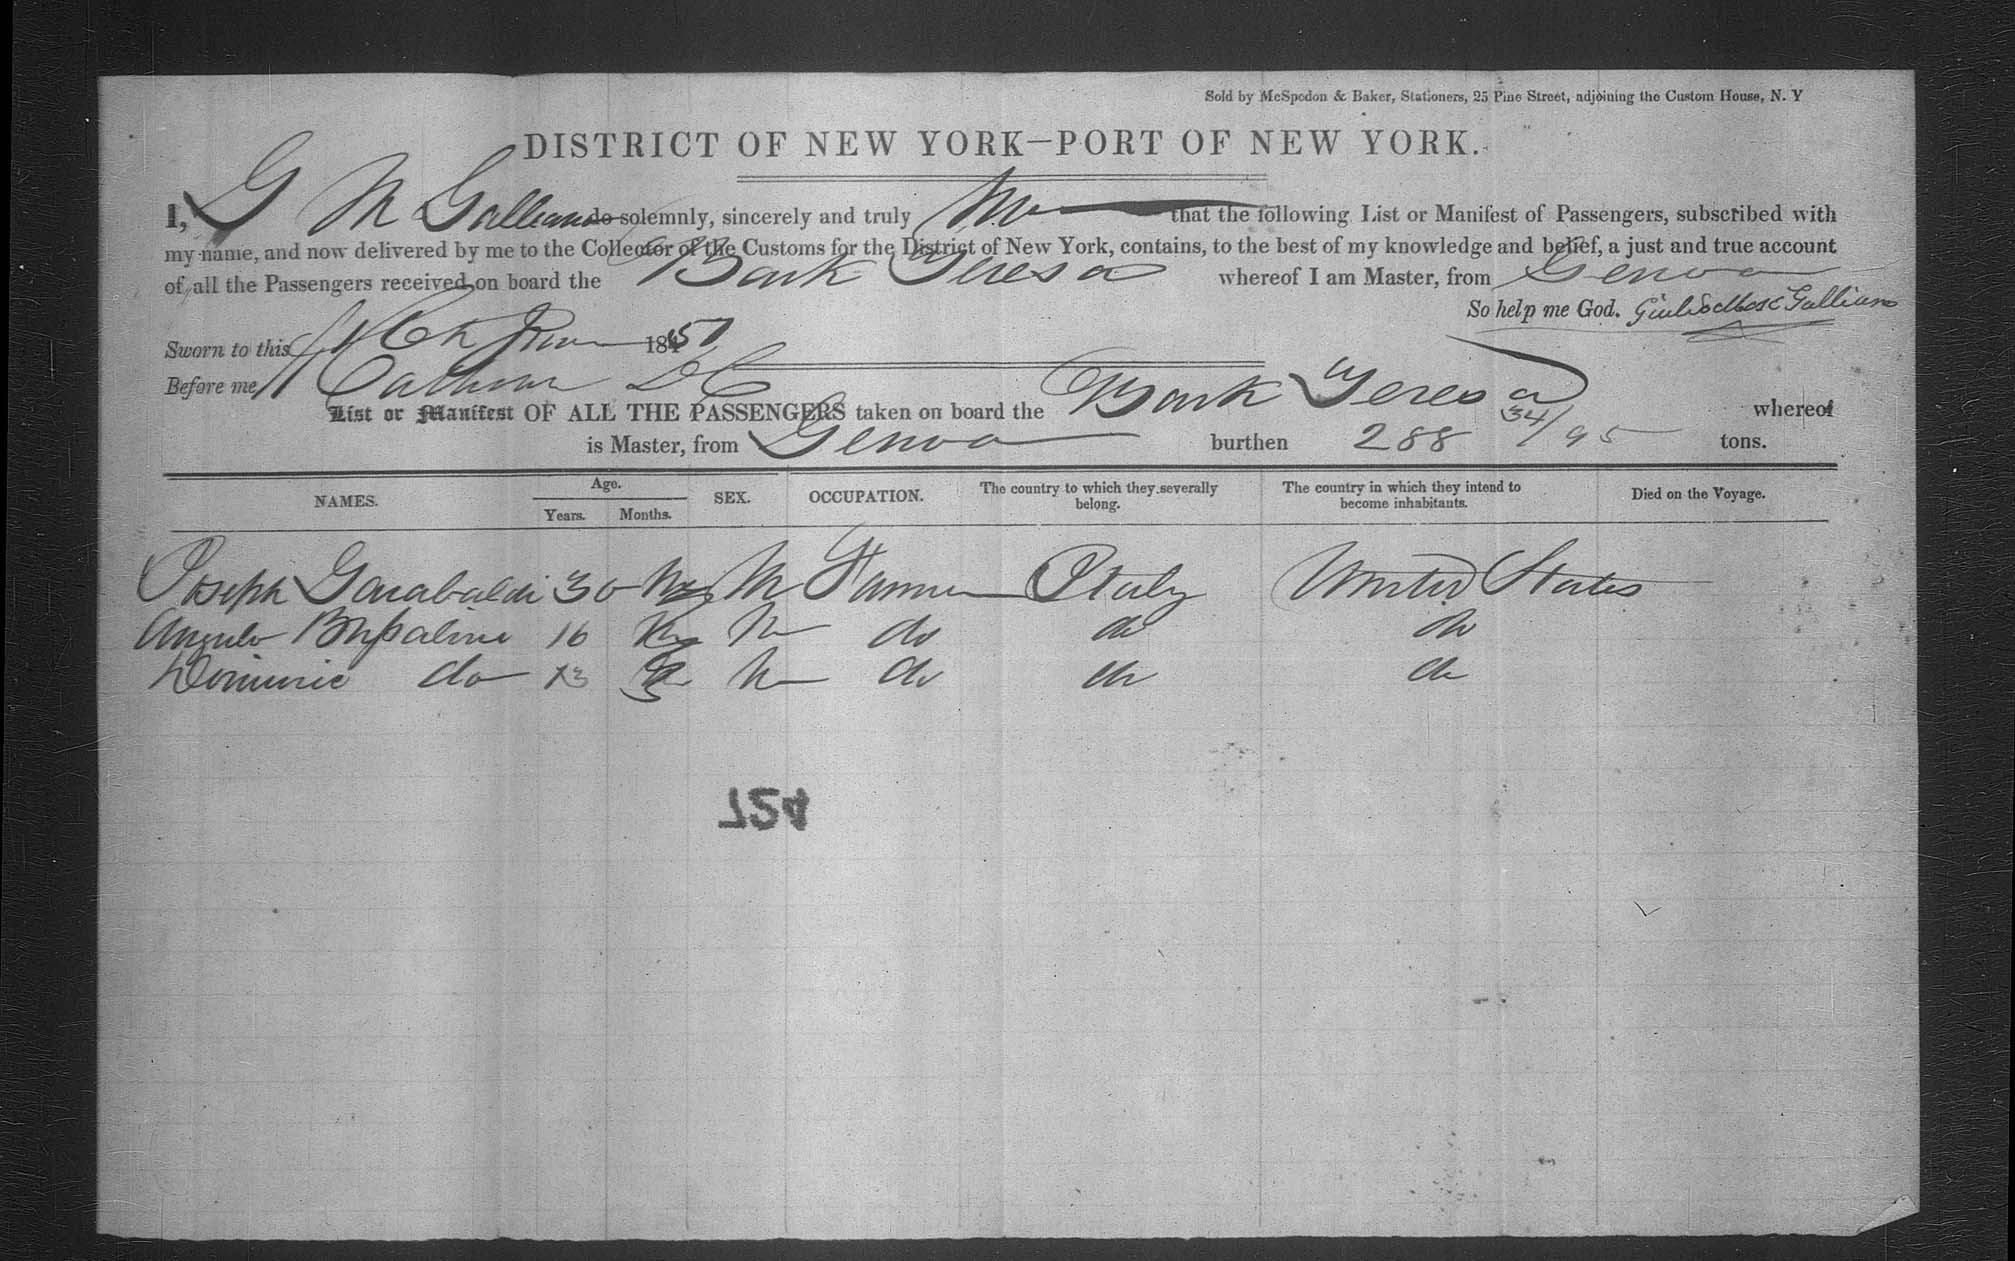 Sold by McSpedon & Baker, Stationers, 25 Pine Street, adjoining the Custom House, N. Y
DISTRICT OF NEW YORK—PORT OF NEW YORK.
I, G M Galliano do solemnly, sincerely and truly that the following List or Manifest of Passengers, subscribed with
my name, and now delivered by me to the Collector of the Customs for the District of New York, contains, to the best of my knowledge and belief, a just and true account
of all the Passengers received on board the Bark Teresa whereof I am Master, from Genoa
So help me God. Galliano
Sworn to this 1851
Before me
List or Manifest OF ALL THE PASSENGERS taken on board the Bark Teresa whereof
is Master, from Genoa burthen 288 34/95 tons.
NAMES. Age. Years. Months. SEX. OCCUPATION. The country to which they severally belong. The country in which they intend to become inhabitants. Died on the Voyage.
Joseph Garabaldi 30 M Farmer Italy United States
16 M do do do
Dominic do 13 M do do do
724